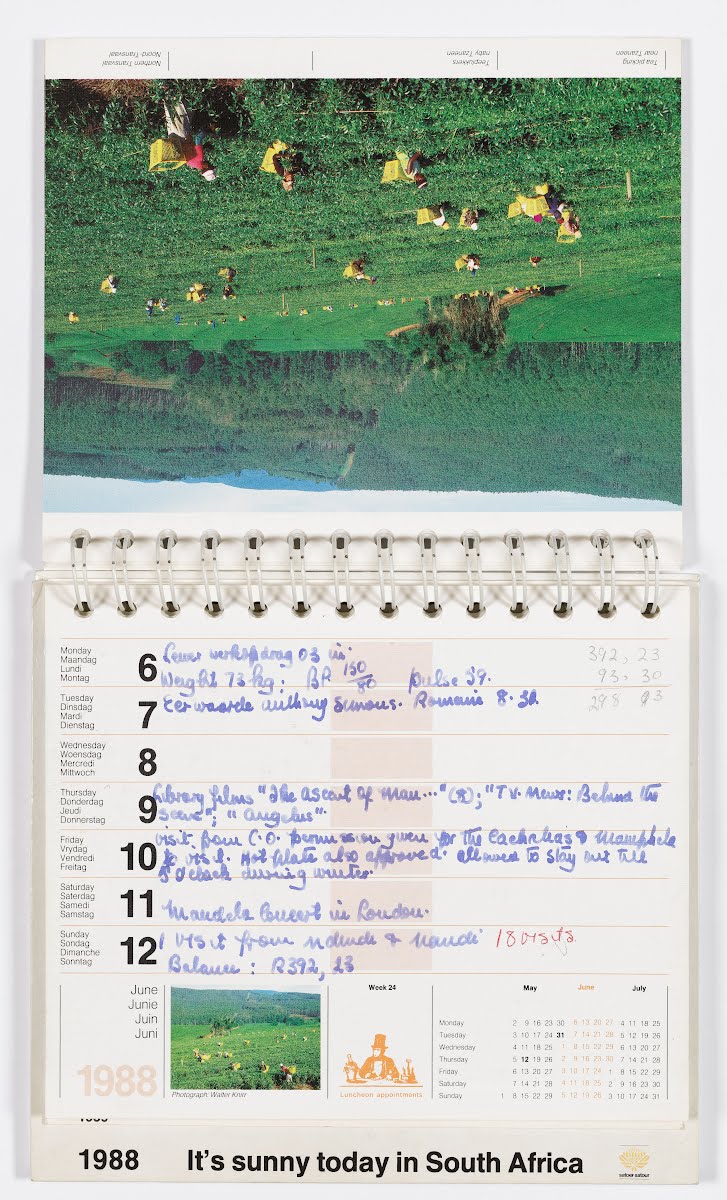 Tea picking
near Tzaneen
Teeplukkers
naby Tzaneen
Northern Transvaal
Noord-Transvaal
Monday
Maandag
Lundi
Montag
6
werkopdrag 03 in.
Weight 73 kg; BP 150/80 pulse 59.
392, 23
93. 30
298 93
Tuesday
Dinsdag
Mardi
Dienstag
7
Eerwaarde Anthony Simons. Romans 8.31
Wednesday
Woensdag
Mercredi
Mittwoch
8
Thursday
Donderdag
Jeudi
Donnerstag
9
Library films "The Ascent of Man..." (8); "TV. News: Behind the
Scene"; "Angelus".
Friday
Vrydag
Vendredi
Freitag
10
visit from C.O. permission given for the Cachalias & Mamphela
to visit. Hot plate also approved. allowed to stay out till
5 o'clock during winter.
Saturday
Saterdag
Samedi
Samstag
11
Mandela Concert in London.
Sunday
Sondag
Dimanche
Sonntag
12
1 visit from Ndindi & Nandi 18 visits.
Balance: R392, 23
June
Junie
Juin
Juni
1988
Photograph: Walter Knirr
Week 24
Luncheon appointments
May June July
Monday 2 9 16 23 30 6 13 20 27 4 11 18 25
Tuesday 3 10 17 24 31 7 14 21 28 5 12 19 26
Wednesday 4 11 18 25 1 8 15 22 29 6 13 20 27
Thursday 5 12 19 26 2 9 16 23 30 7 14 21 28
Friday 6 13 20 27 3 10 17 24 1 8 15 22 29
Saturday 7 14 21 28 4 11 18 25 2 9 16 23 30
Sunday 1 8 15 22 29 5 12 19 26 3 10 17 24 31
1988 It's sunny today in South Africa
satoer satour